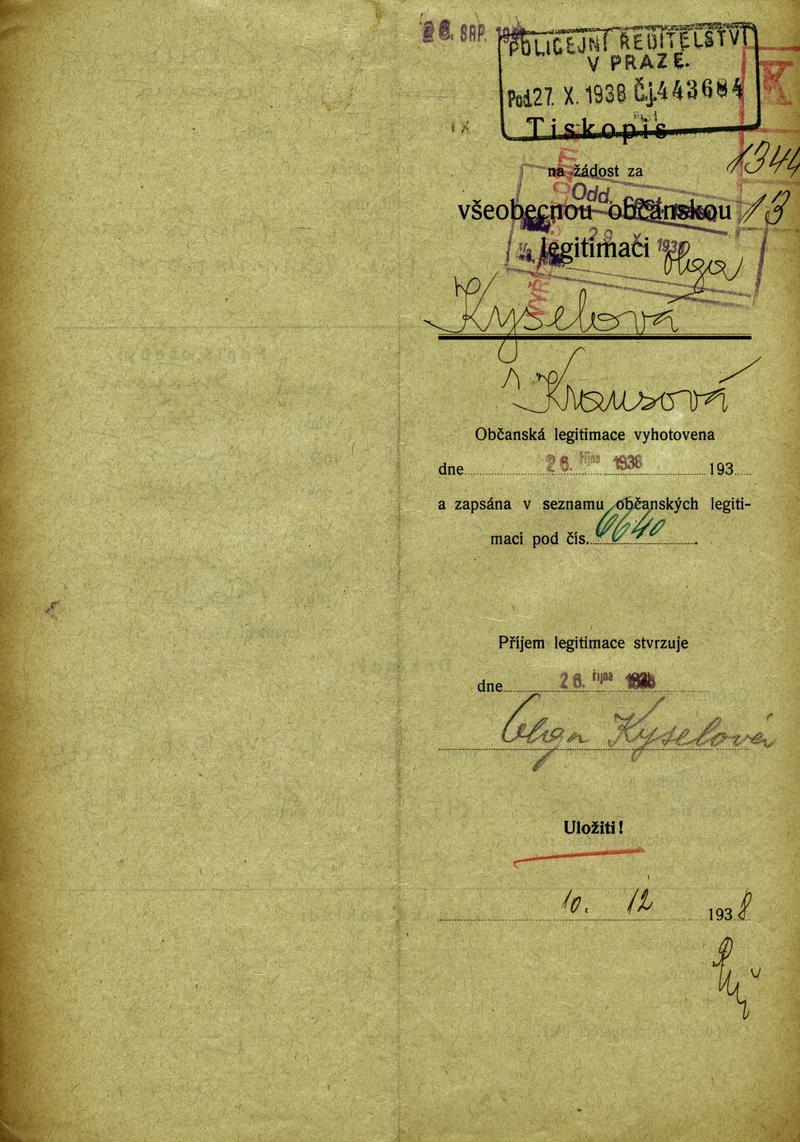 26. SRP.
POLICEJNÍ ŘEDITELSTVÍ
V PRAZE.
Pod. 27. X. 1938 Čj. 443684
Tiskopis
1344
na žádost za
Odd.
všeobecnou občanskou 13
legitimaci Olga
Kyselová
Krausová
Občanská legitimace vyhotovena
dne 26. října 1938 193
a zapsána v seznamu občanských legiti-
mací pod čís. 6640.
Příjem legitimace stvrzuje
dne 26. října 1938
Olga Kyselová
Uložiti!
10. 12 1938